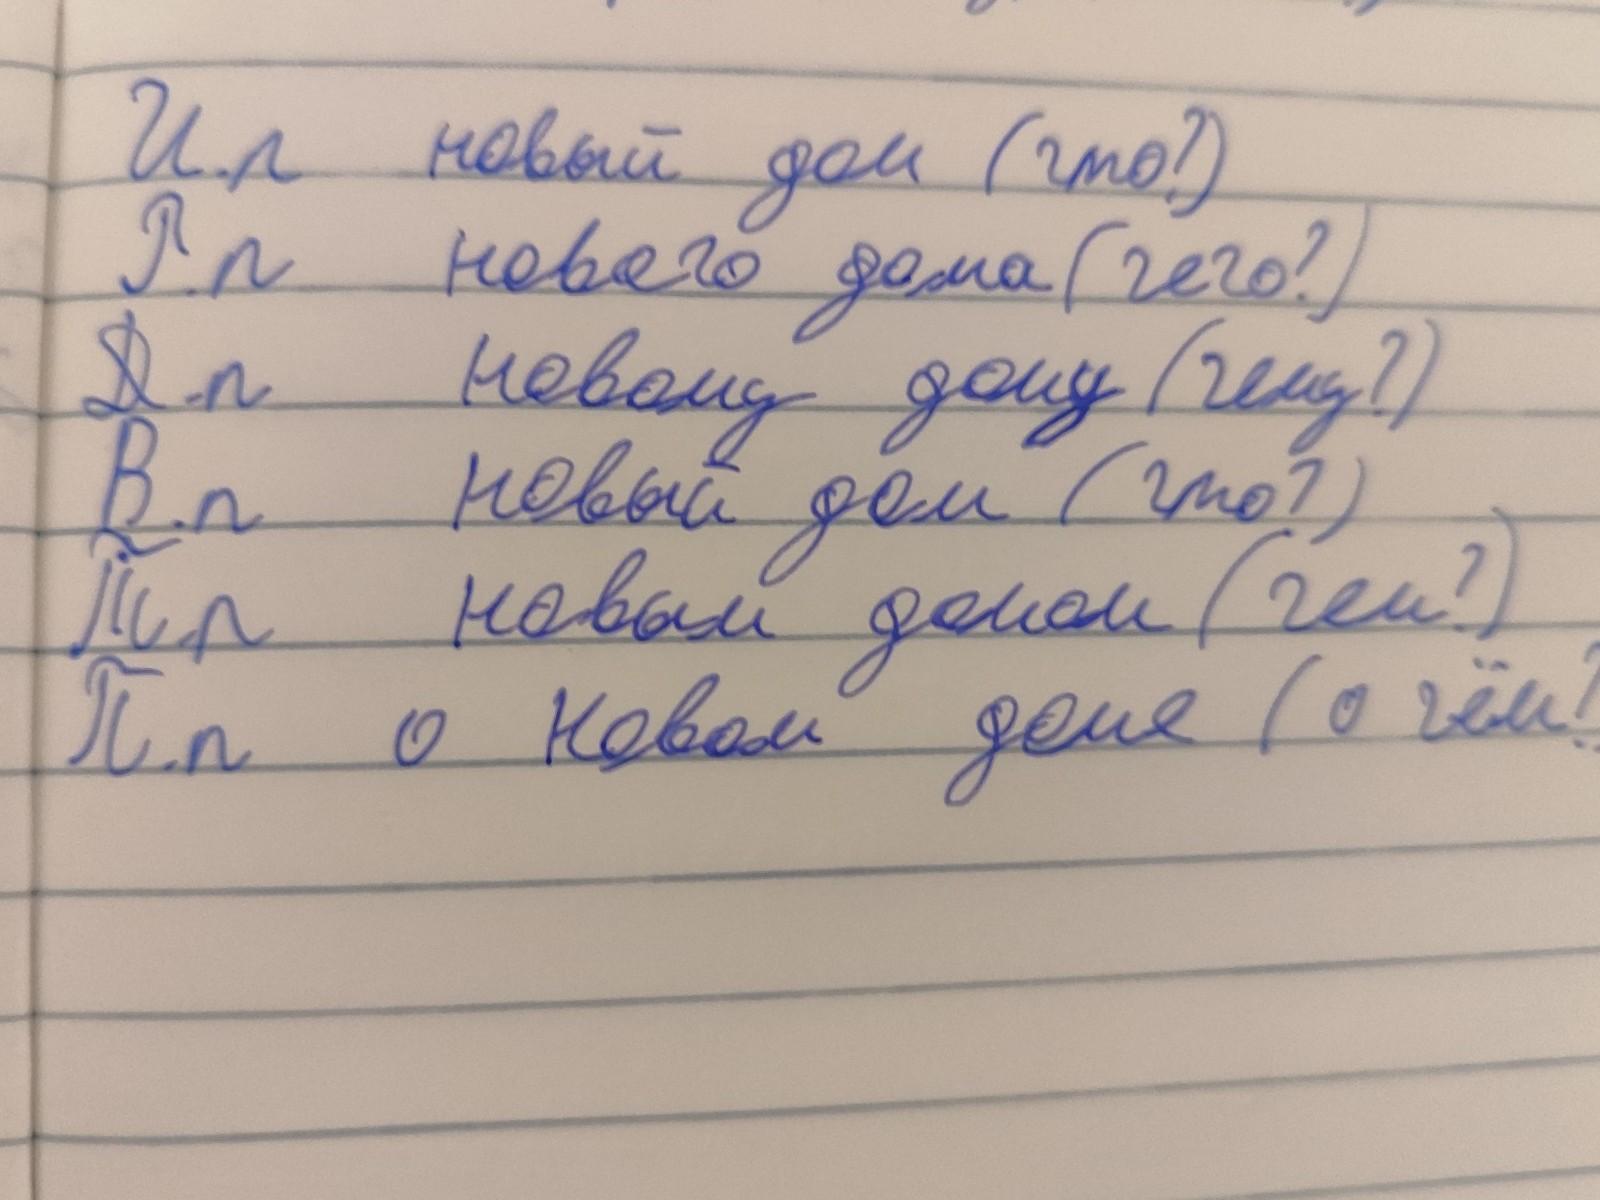 И.п новый дом (что?)
Р.п нового дома (чего?)
Д.п новому дому (чему?)
В.п новый дом (что?)
Т.п новым домом (чем?)
П.п о новом доме (о чём?